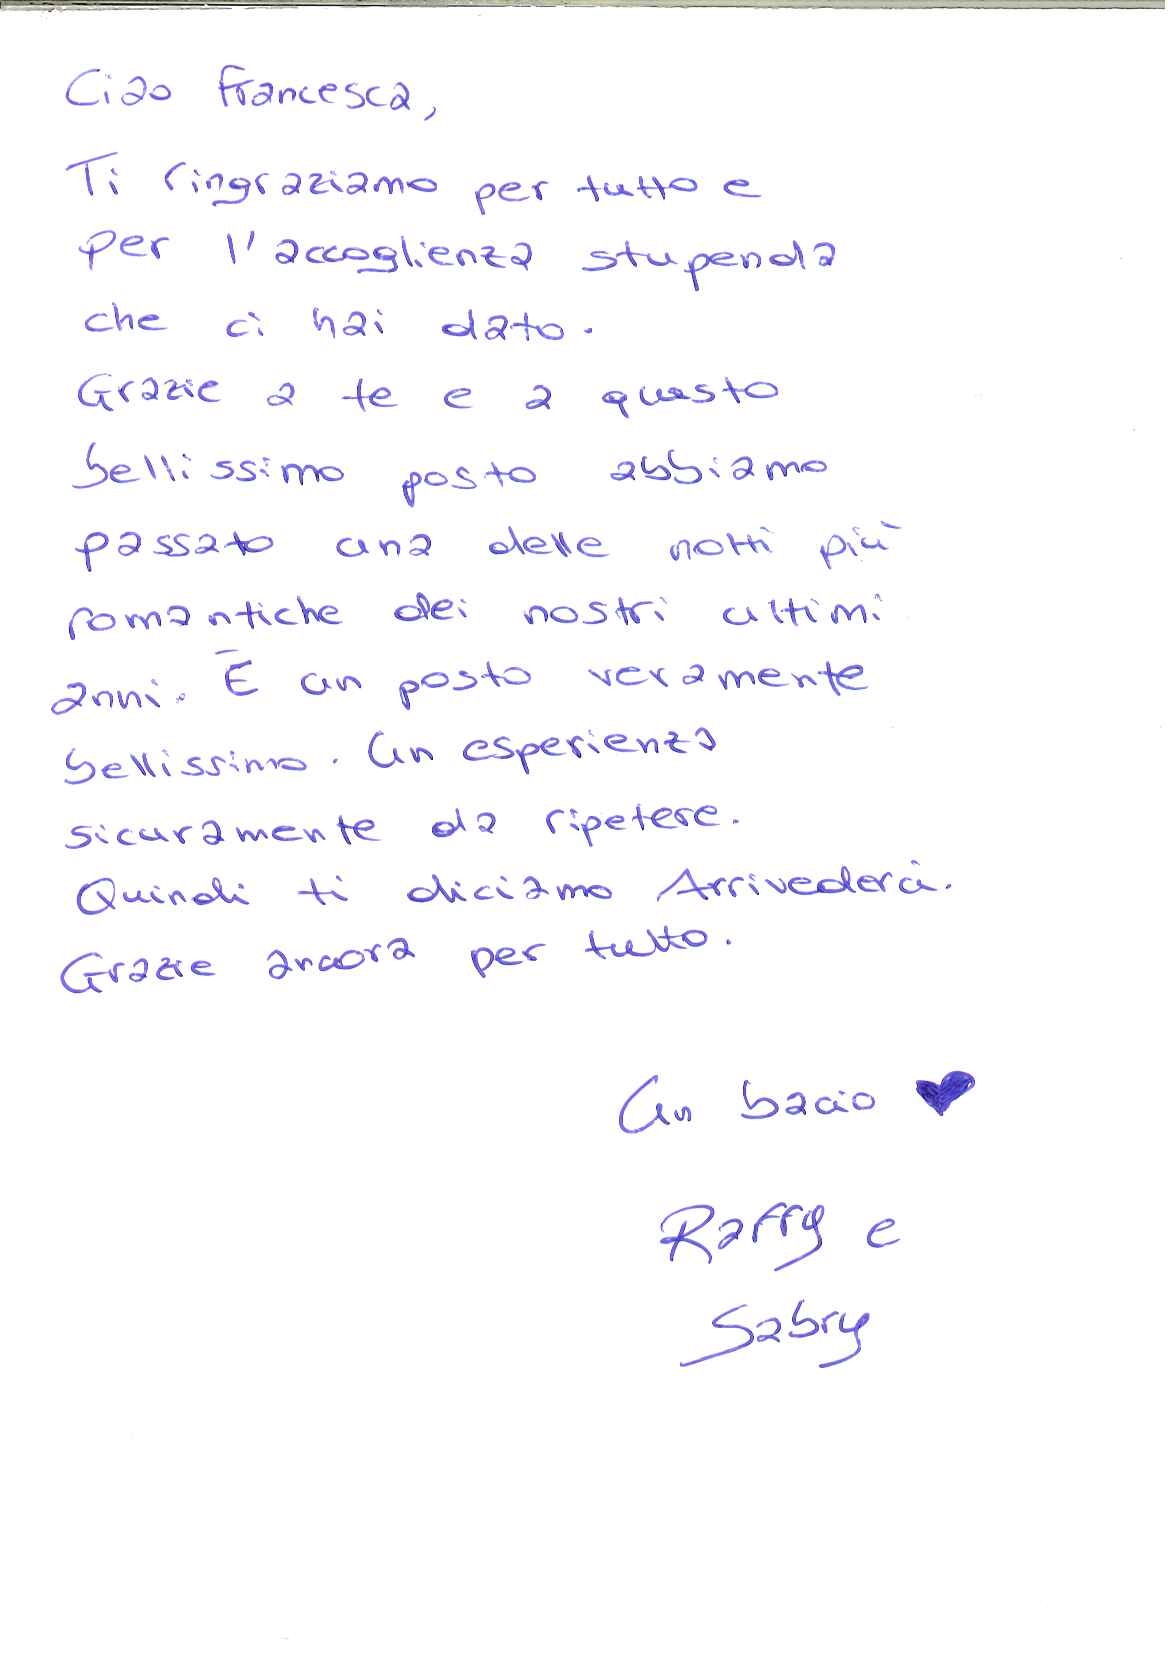 Ciao Francesca,
Ti ringraziamo per tutto e
per l'accoglienza stupenda
che ci hai dato.
Grazie a te e a questo
bellissimo posto abbiamo
passato una delle notti più
romantiche dei nostri ultimi
anni. È un posto veramente
bellissimo. Un esperienza
sicuramente da ripetere.
Quindi ti diciamo Arrivederci.
Grazie ancora per tutto.
Un bacio ♥
Raffy e
Sabry